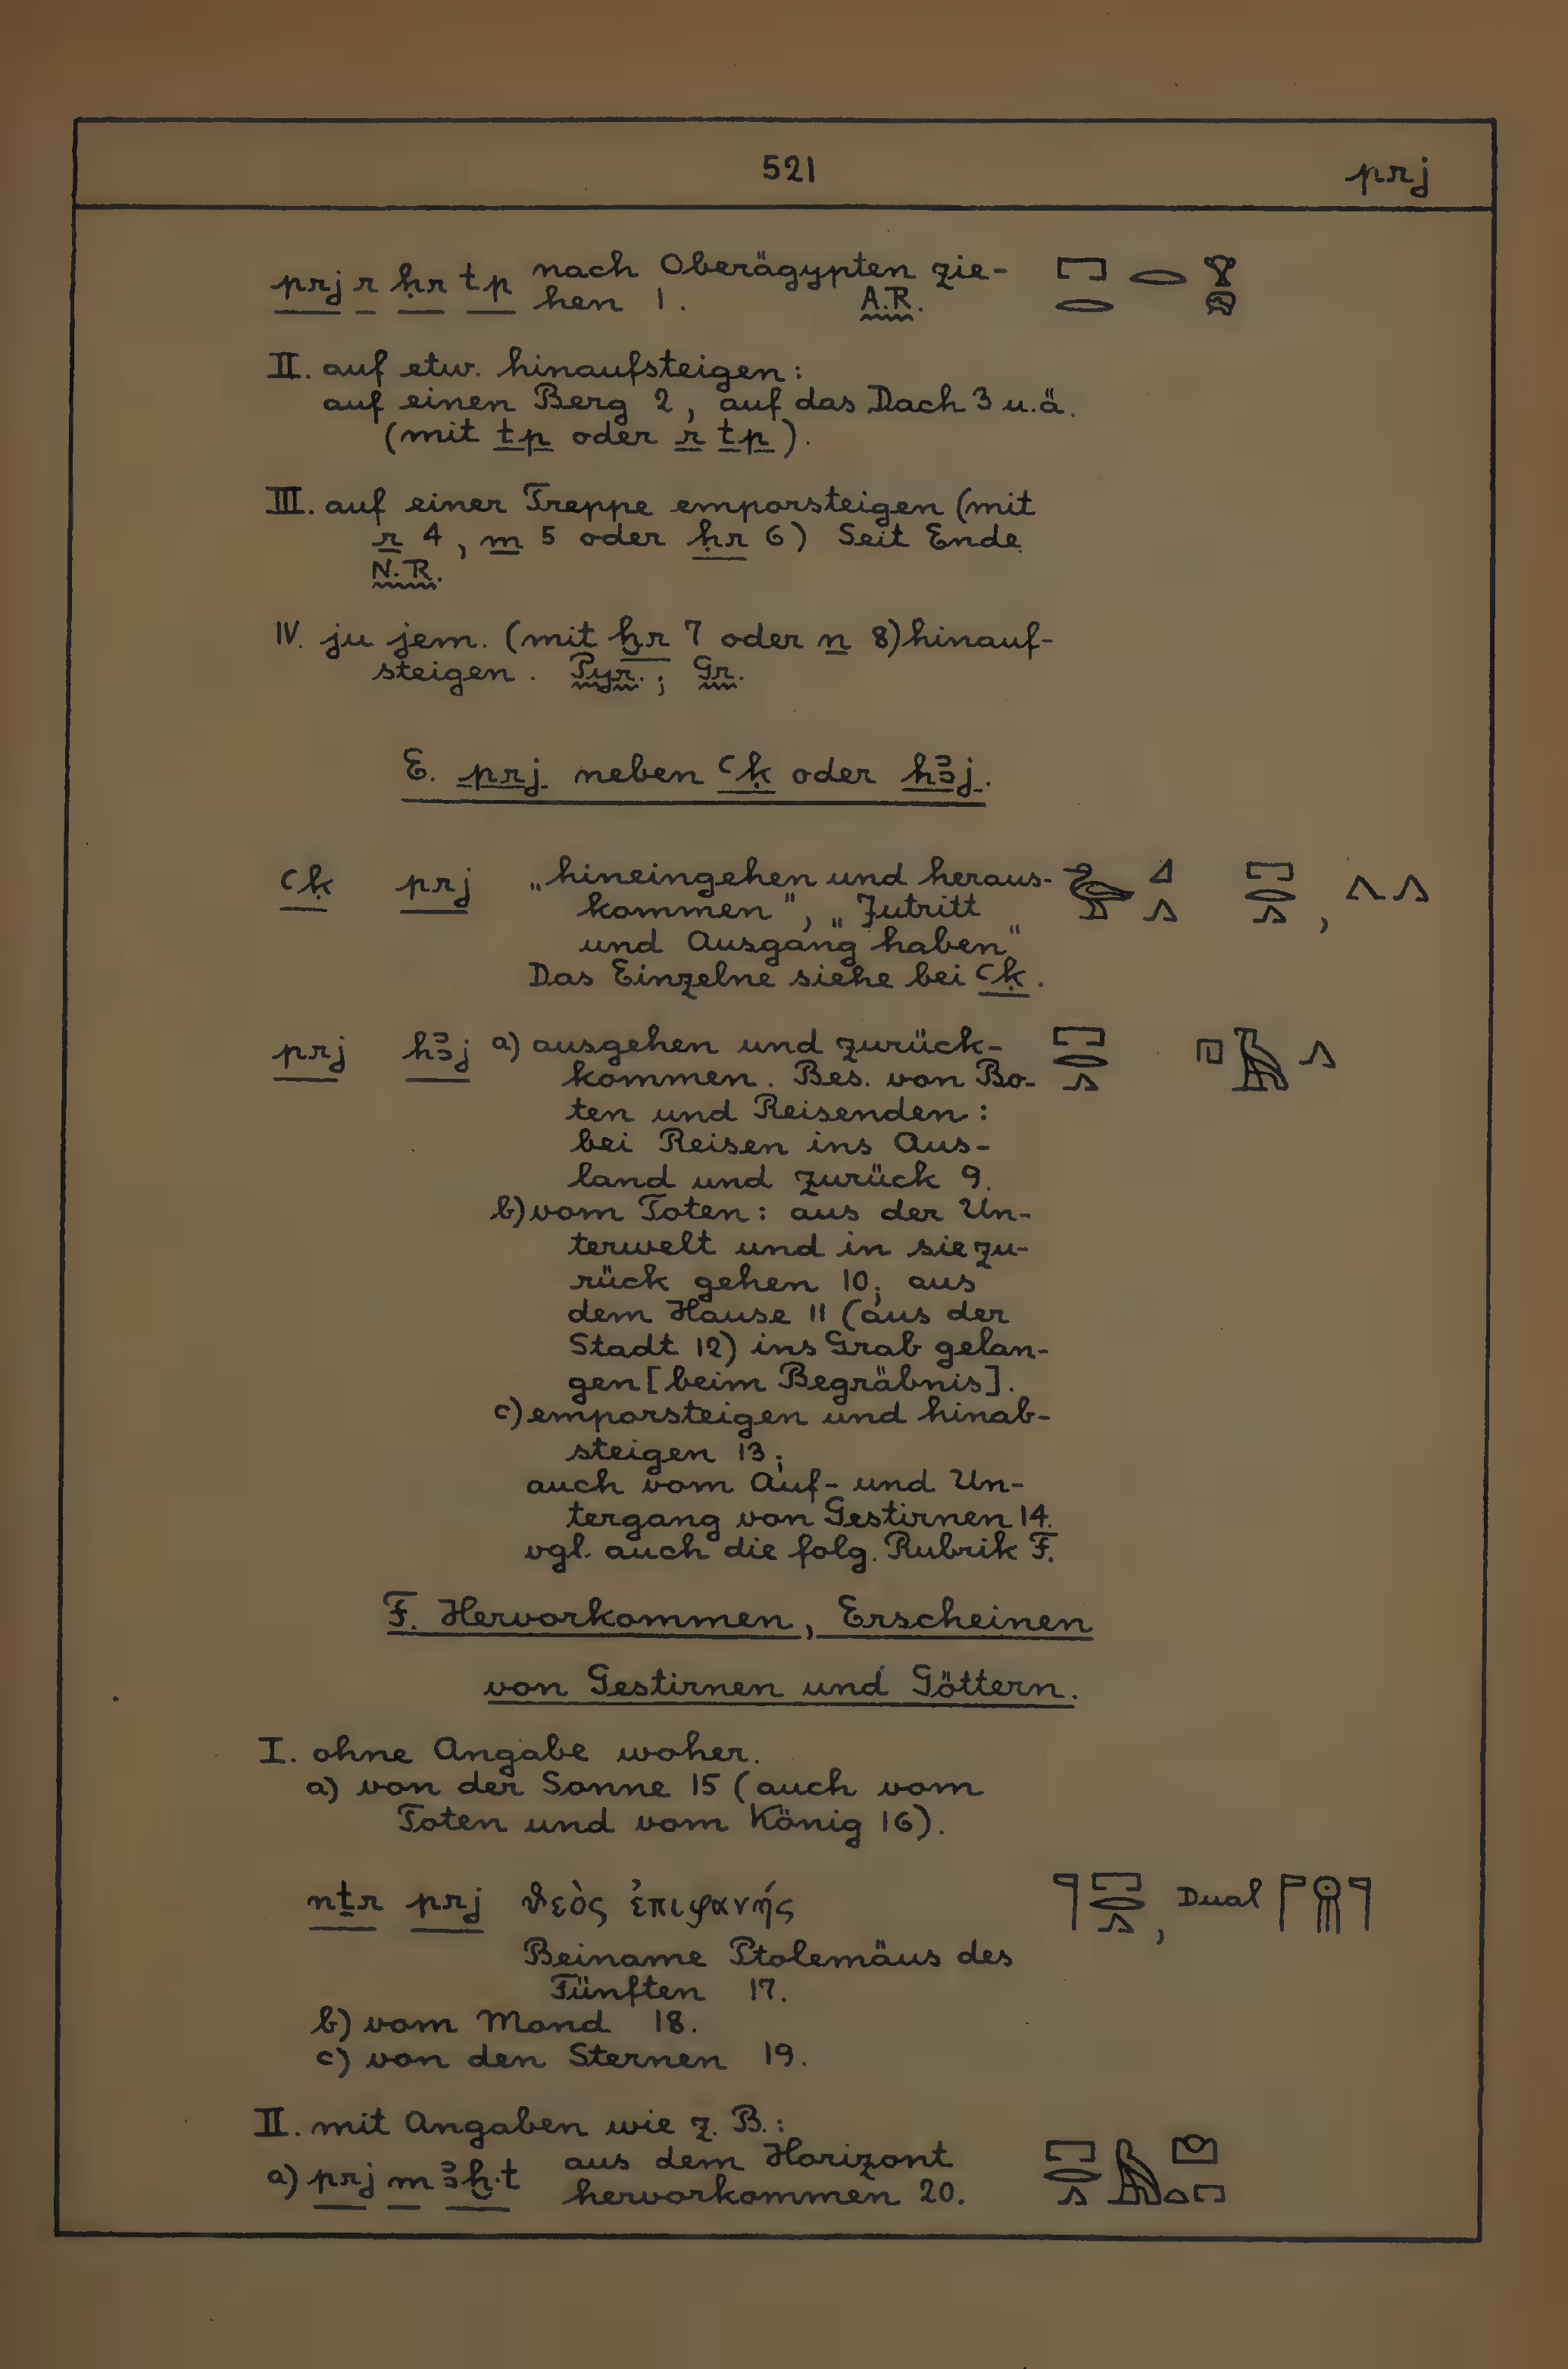 521 prj
prj r ḥr tp nach Oberägypten zie-
hen 1. A.R.
II. auf etw. hinaufsteigen:
auf einen Berg 2, auf das Dach 3 u.ä.
(mit tp oder r tp).
III. auf einer Treppe emporsteigen (mit
r 4, m 5 oder ḥr 6) Seit Ende
N.R.
IV. zu jem. (mit ẖr 7 oder n 8) hinauf-
steigen. Pyr.; Gr.
E. prj neben ꜥḳ oder hꜣj.
ꜥḳ prj „hineingehen und heraus-
kommen", „Zutritt
und Ausgang haben"
Das Einzelne siehe bei ꜥḳ.
prj hꜣj a) ausgehen und zurück-
kommen. Bes. von Bo-
ten und Reisenden:
bei Reisen ins Aus-
land und zurück 9.
b) vom Toten: aus der Un-
terwelt und in sie zu-
rück gehen 10; aus
dem Hause 11 (aus der
Stadt 12) ins Grab gelan-
gen [beim Begräbnis].
c) emporsteigen und hinab-
steigen 13;
auch vom Auf- und Un-
tergang von Gestirnen 14.
vgl. auch die folg. Rubrik F.
F. Hervorkommen, Erscheinen
von Gestirnen und Göttern.
I. ohne Angabe woher.
a) von der Sonne 15 (auch vom
Toten und vom König 16).
nṯr prj ϑεὸς ἐπιφανής , Dual
Beiname Ptolemäus des
Fünften 17.
b) vom Mond 18.
c) von den Sternen 19.
II. mit Angaben wie z. B.:
a) prj m ꜣḫ.t aus dem Horizont
hervorkommen 20.